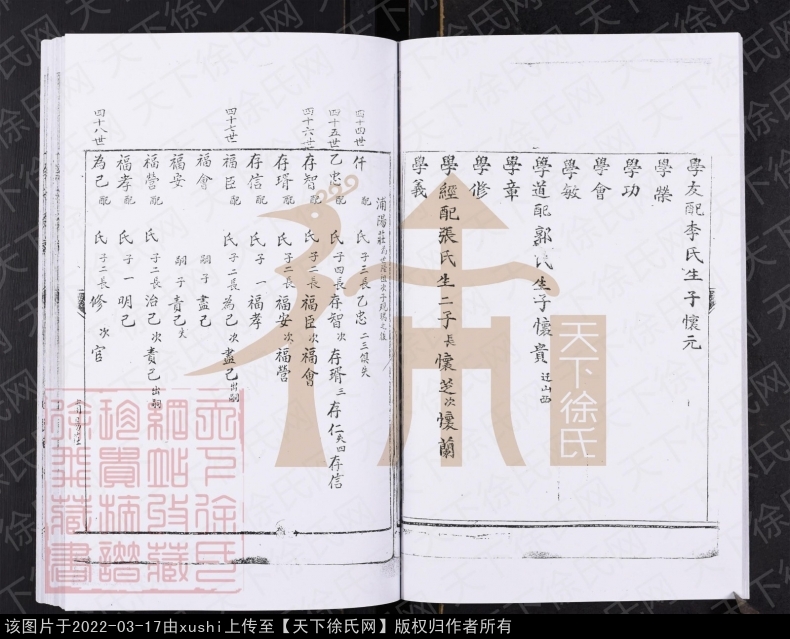 學友配李氏生子懷元
學榮
學功
學會
學敏
學道配郭氏生子懷貴 迁山西
學章
學修
學經配張氏生二子長懷芝次懷蘭
學義
浦陽莊
四十四世 仟 配 氏 子三長乙忠 二三俱失
四十五世 乙忠 配 氏 子四長存智次存壻三存仁失四存信
四十六世 存智 配 氏 子二長福臣次福會
存壻 配 氏 子二長福安次福營
存信 配 氏 子一福孝
四十七世 福臣 配 氏 子二長為己次盡己出嗣
福會 嗣子盡己
福安 嗣子責己失
福營 配 氏 子二長治己次責己出嗣
福孝 配 氏 子一明己
四十八世 為己 配 氏 子二長修次官
天下徐氏
天下徐氏网
该图片于2022-03-17由xushi上传至【天下徐氏网】版权归作者所有